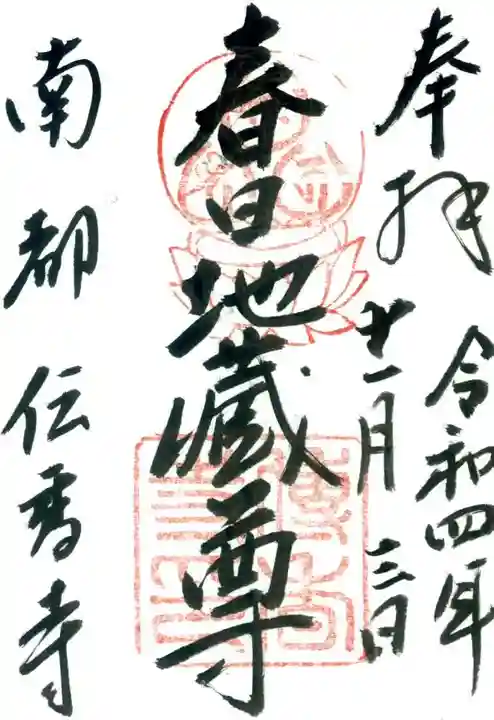 奉拝
令和四年
十一月三日
春日地蔵尊
南都 伝香寺